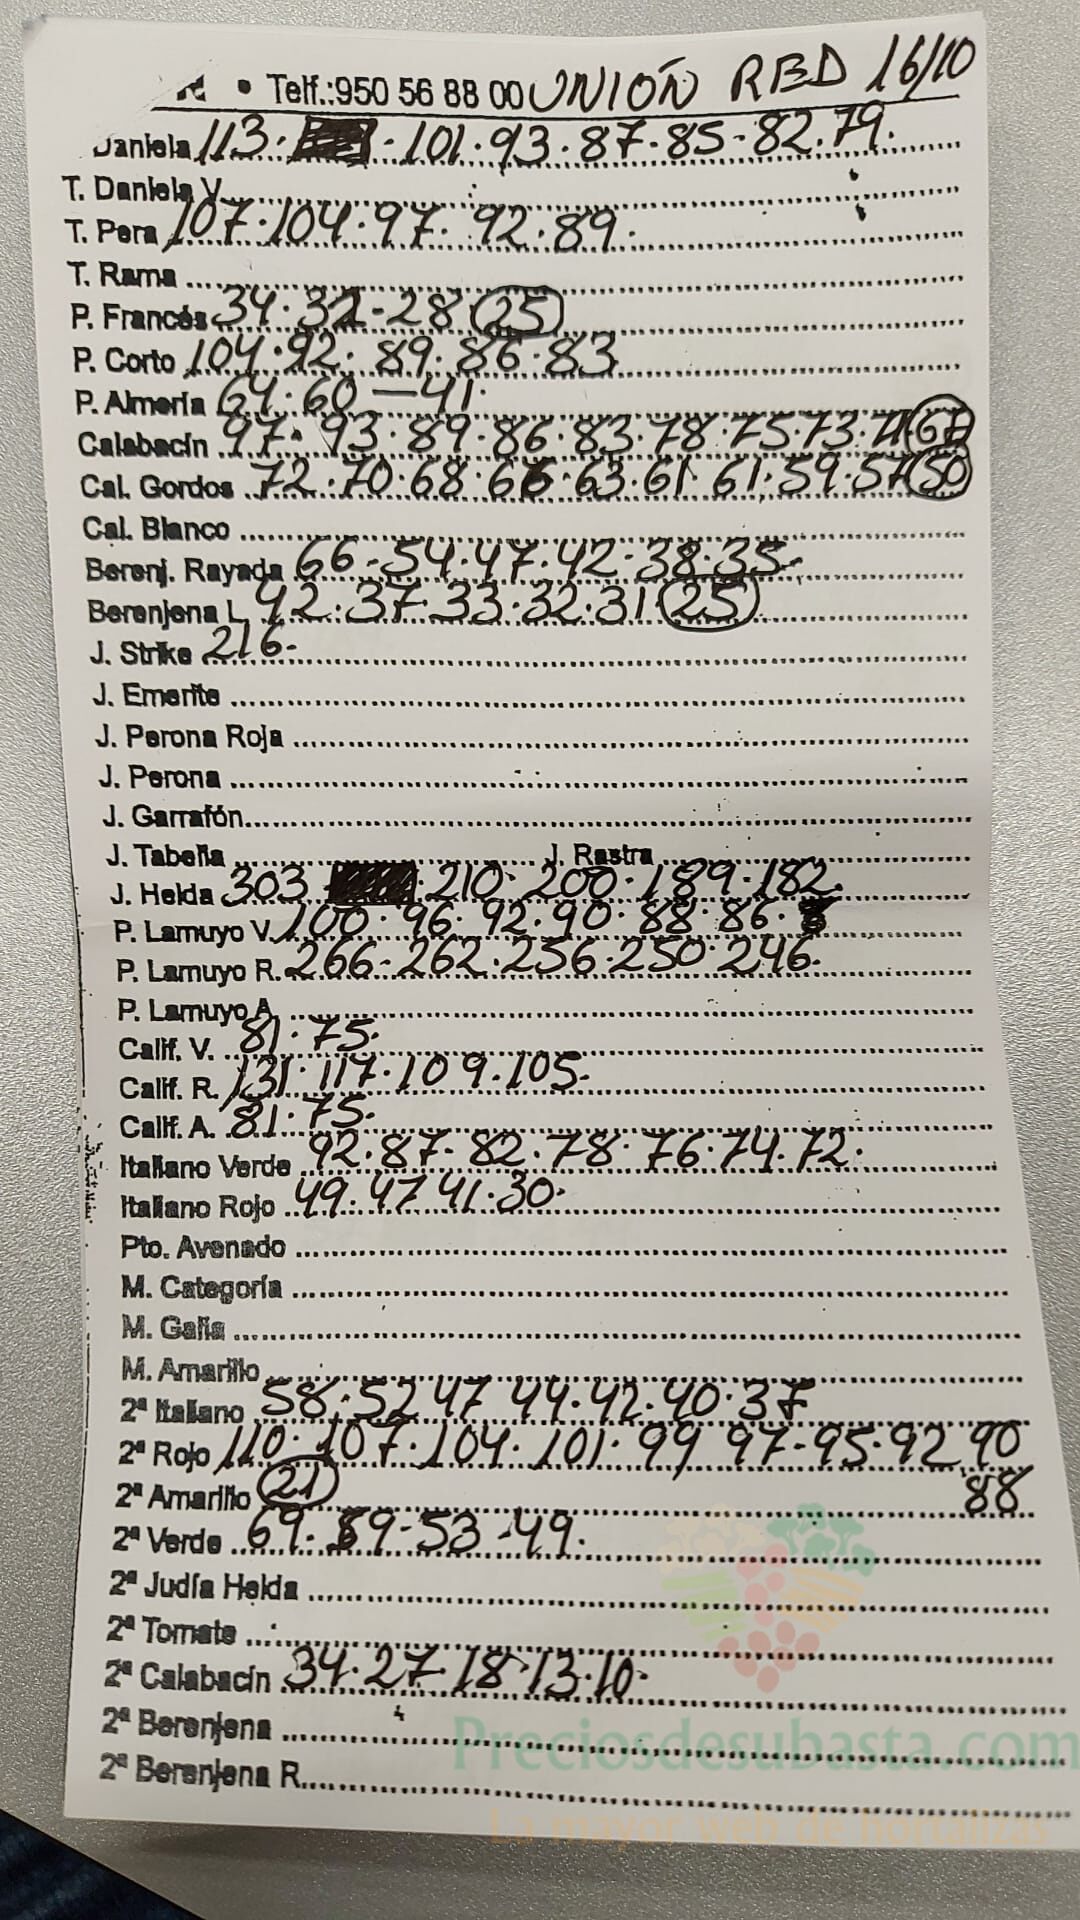 • Telf.:950 56 88 00 UNIÓN RBD 16/10
Daniela 113. - 101.93.87.85-82.79.
T. Daniela V.
T. Pera 107.104.97. 92.89.
T. Rama
P. Francés 34.32-28 25
P. Corto 104.92. 89.86.83
P. Almería 64.60 — 41.
Calabacín 97. 93.89.86.83.78.75.73.71 67
Cal. Gordos 72.70.68.66.63.61. 61.59.57 50
Cal. Blanco
Berenj. Rayada 66-54.47.42-38.35-
Berenjena L. 42.37.33.32.31. 25
J. Strike 216-
J. Emerite
J. Perona Roja
J. Perona
J. Garrafón
J. Tabella J. Rastra
J. Helda 303 . 210. 200.189.182.
P. Lamuyo V. 100.96.92.90.88.86.
P. Lamuyo R. 266-262.256.250.246.
P. Lamuyo A.
Calif. V. 81.75.
Calif. R. 131.117.109.105-
Calif. A. 81.75.
Italiano Verde 92.87-82.78.76.74.72.
Italiano Rojo 49.47 41.30.
Pto. Avenado
M. Categoría
M. Galia
M. Amarillo
2ª Italiano 58.52 47 44.42.40.37
2ª Rojo 110.107.104.101.99 97-95.92 90
88
2ª Amarillo 21
2ª Verde 69. 59-53-49.
2ª Judía Helda
2ª Tomate
2ª Calabacín 34.27.18.13.10.
2ª Berenjena
2ª Berenjena R.
Preciosdesubasta.com
La mayor web de hortalizas